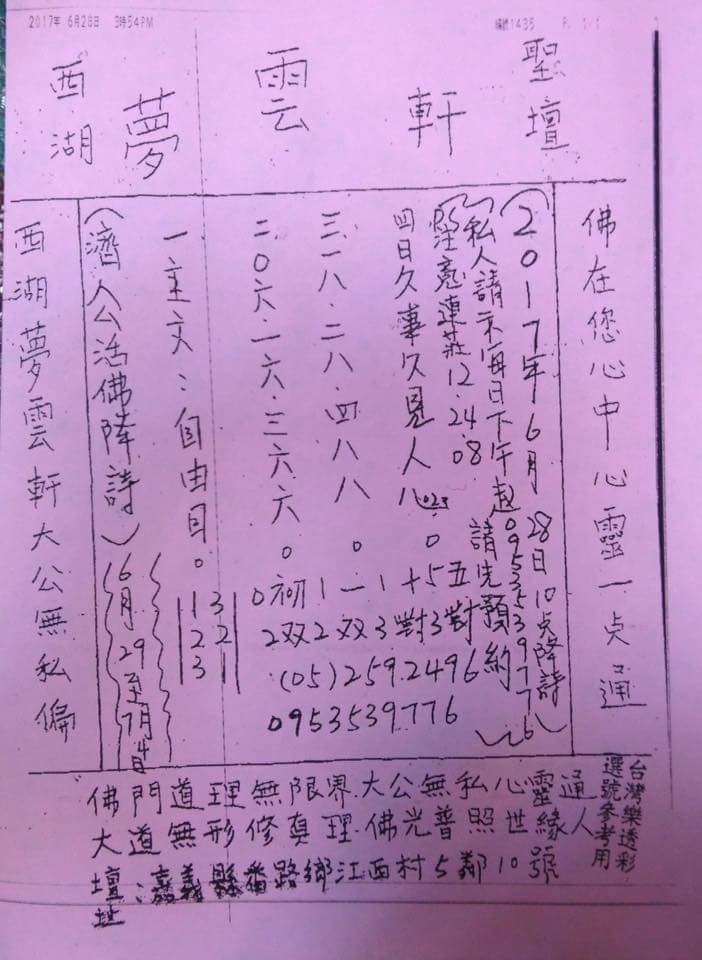 2017年 6月28日 3時54PM
P. 1/1
西湖 夢雲軒 聖壇
佛在您心中心靈一点通
(2017年6月28日10点降詩)
(私人請示每日下午起0953539776)
注意連莊12.24.08 請先預約
四日久事久見人八023.
三.一八.二八.四八八
二.0六.一六.三六六
一主文:自由目
(濟人公活佛降詩)
(6月29至7月4日
西湖夢雲軒大公無私偏
0 初 1 一 1 十 5 五
2双2双3對3對
(05)2592496
0953539776
1 3
2 2
3 1
佛門道理無限界.大公無私心靈通
大道無形修真理.佛光普照世緣人
壇址:嘉義縣番路鄉江西村5鄰10號
台灣樂透彩
選號參考用